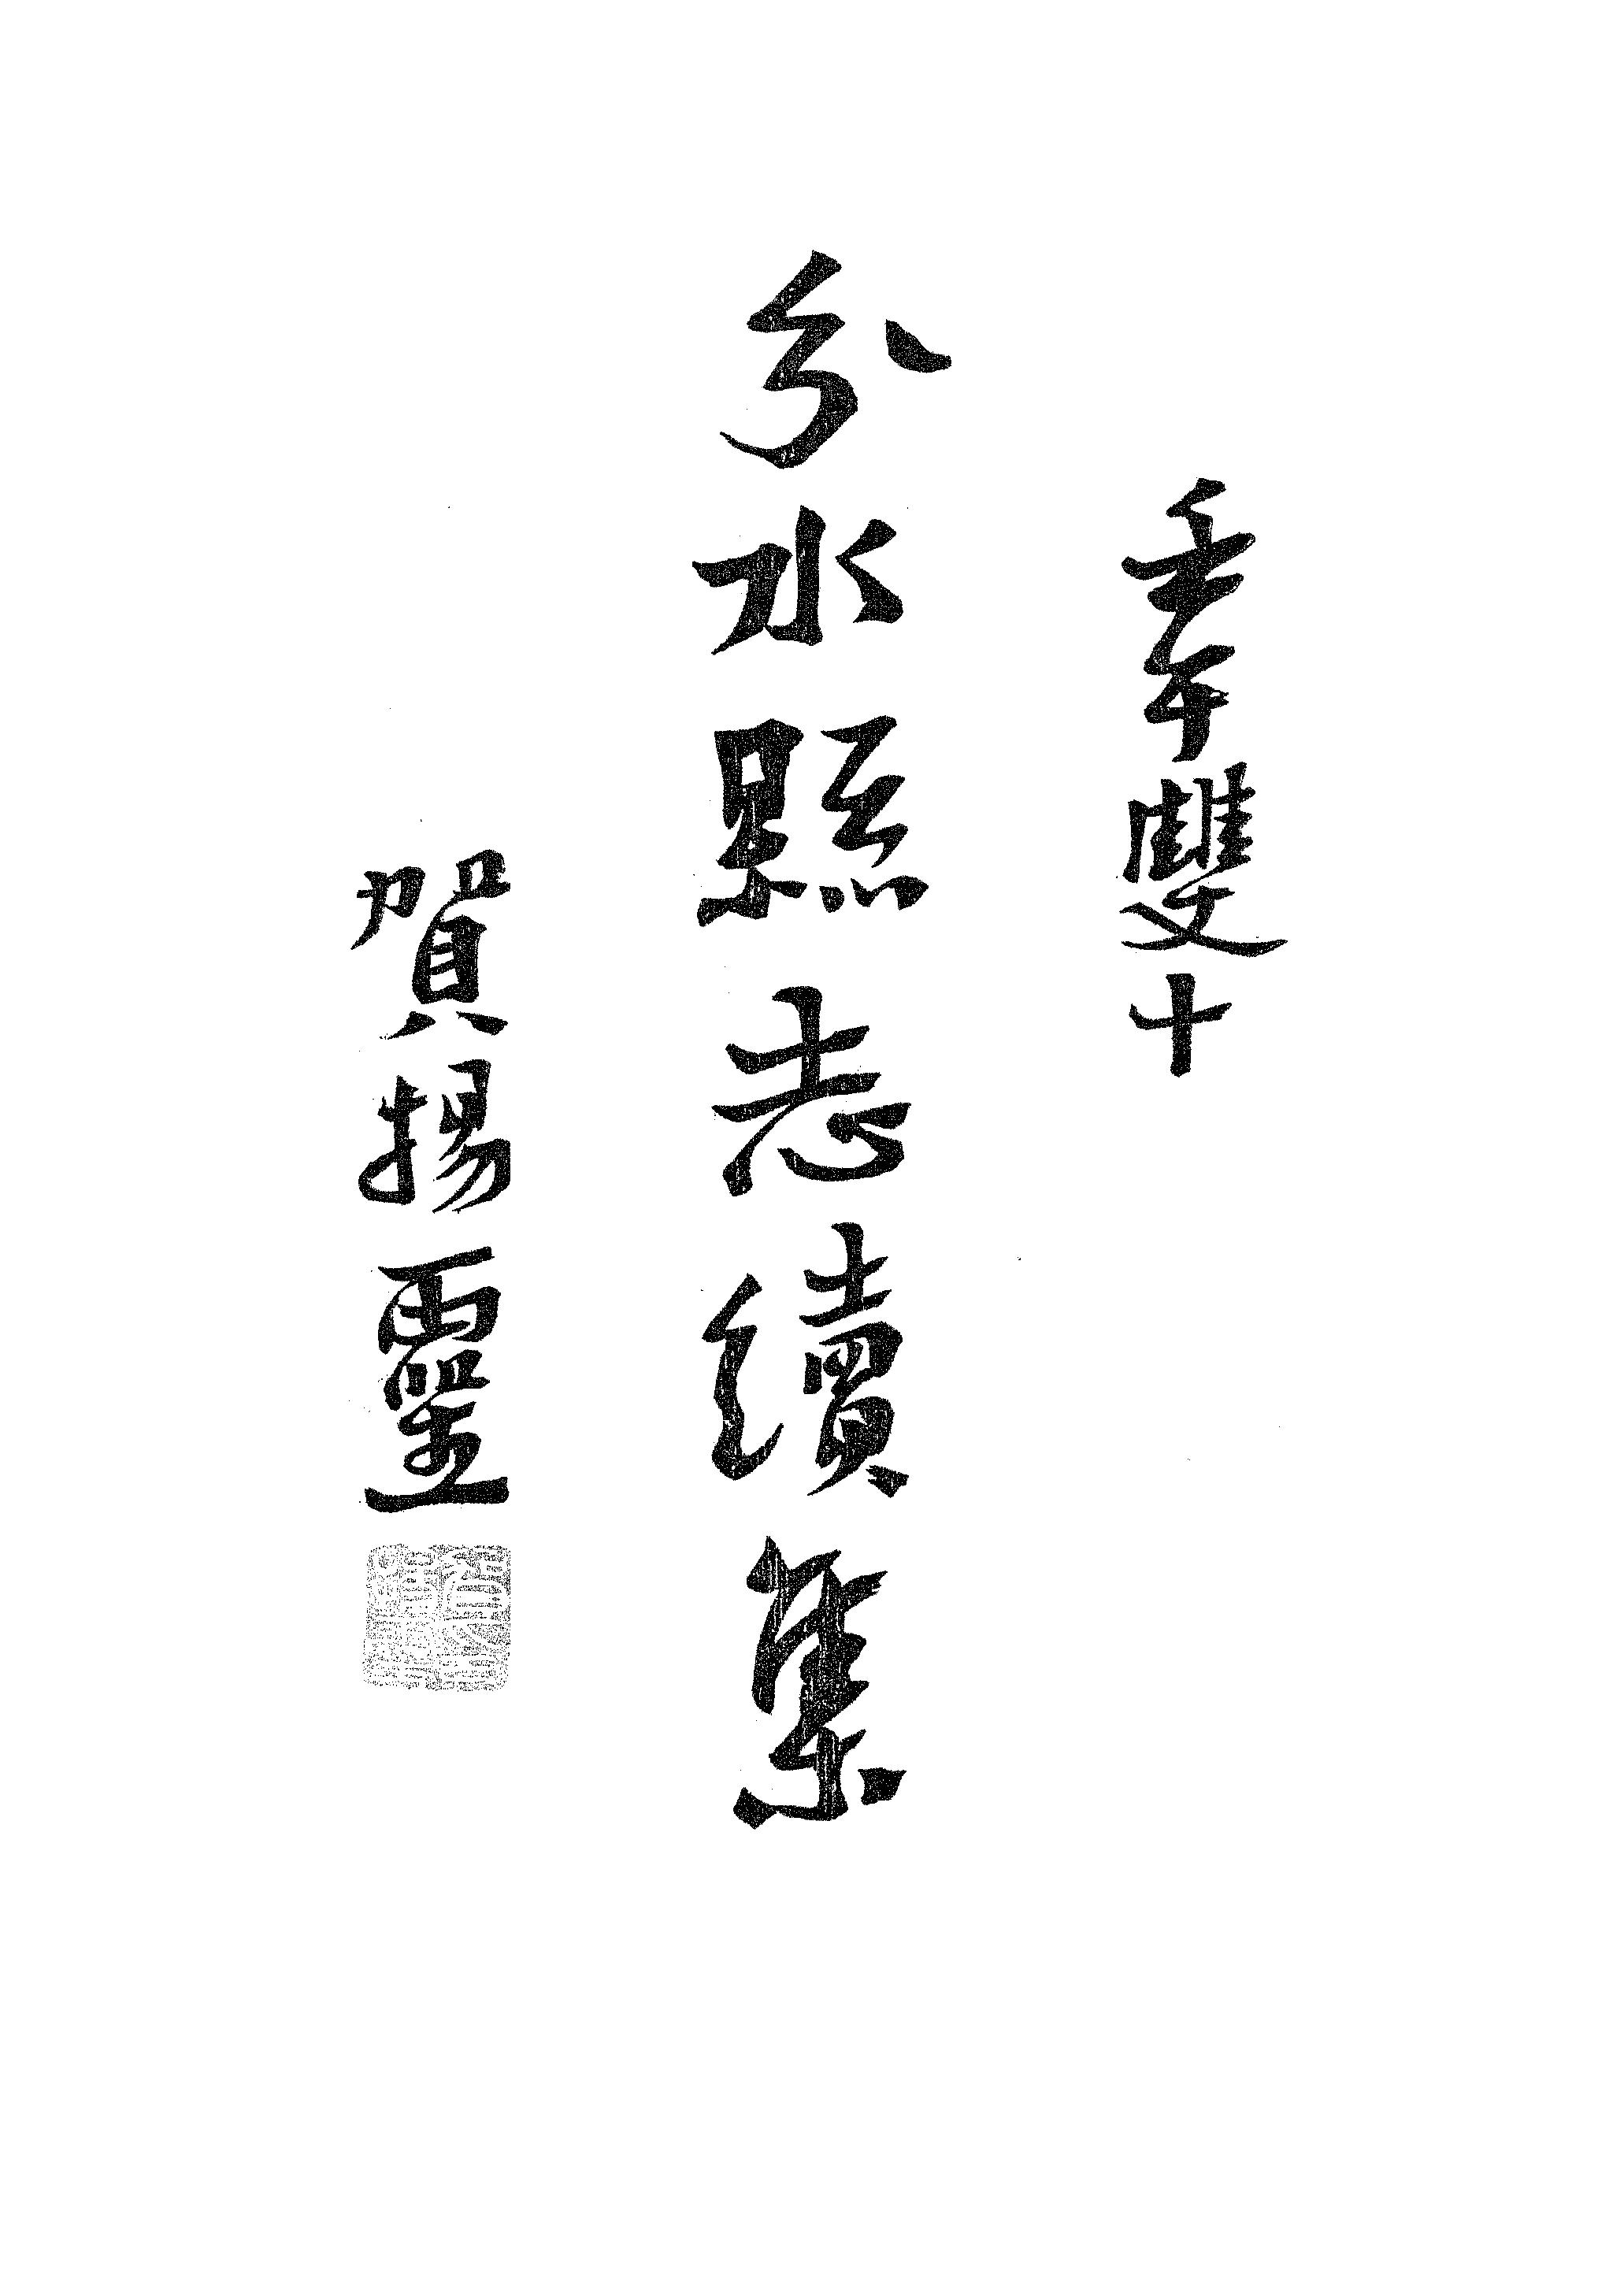 壬午雙十
分水縣志續集
賀揚靈